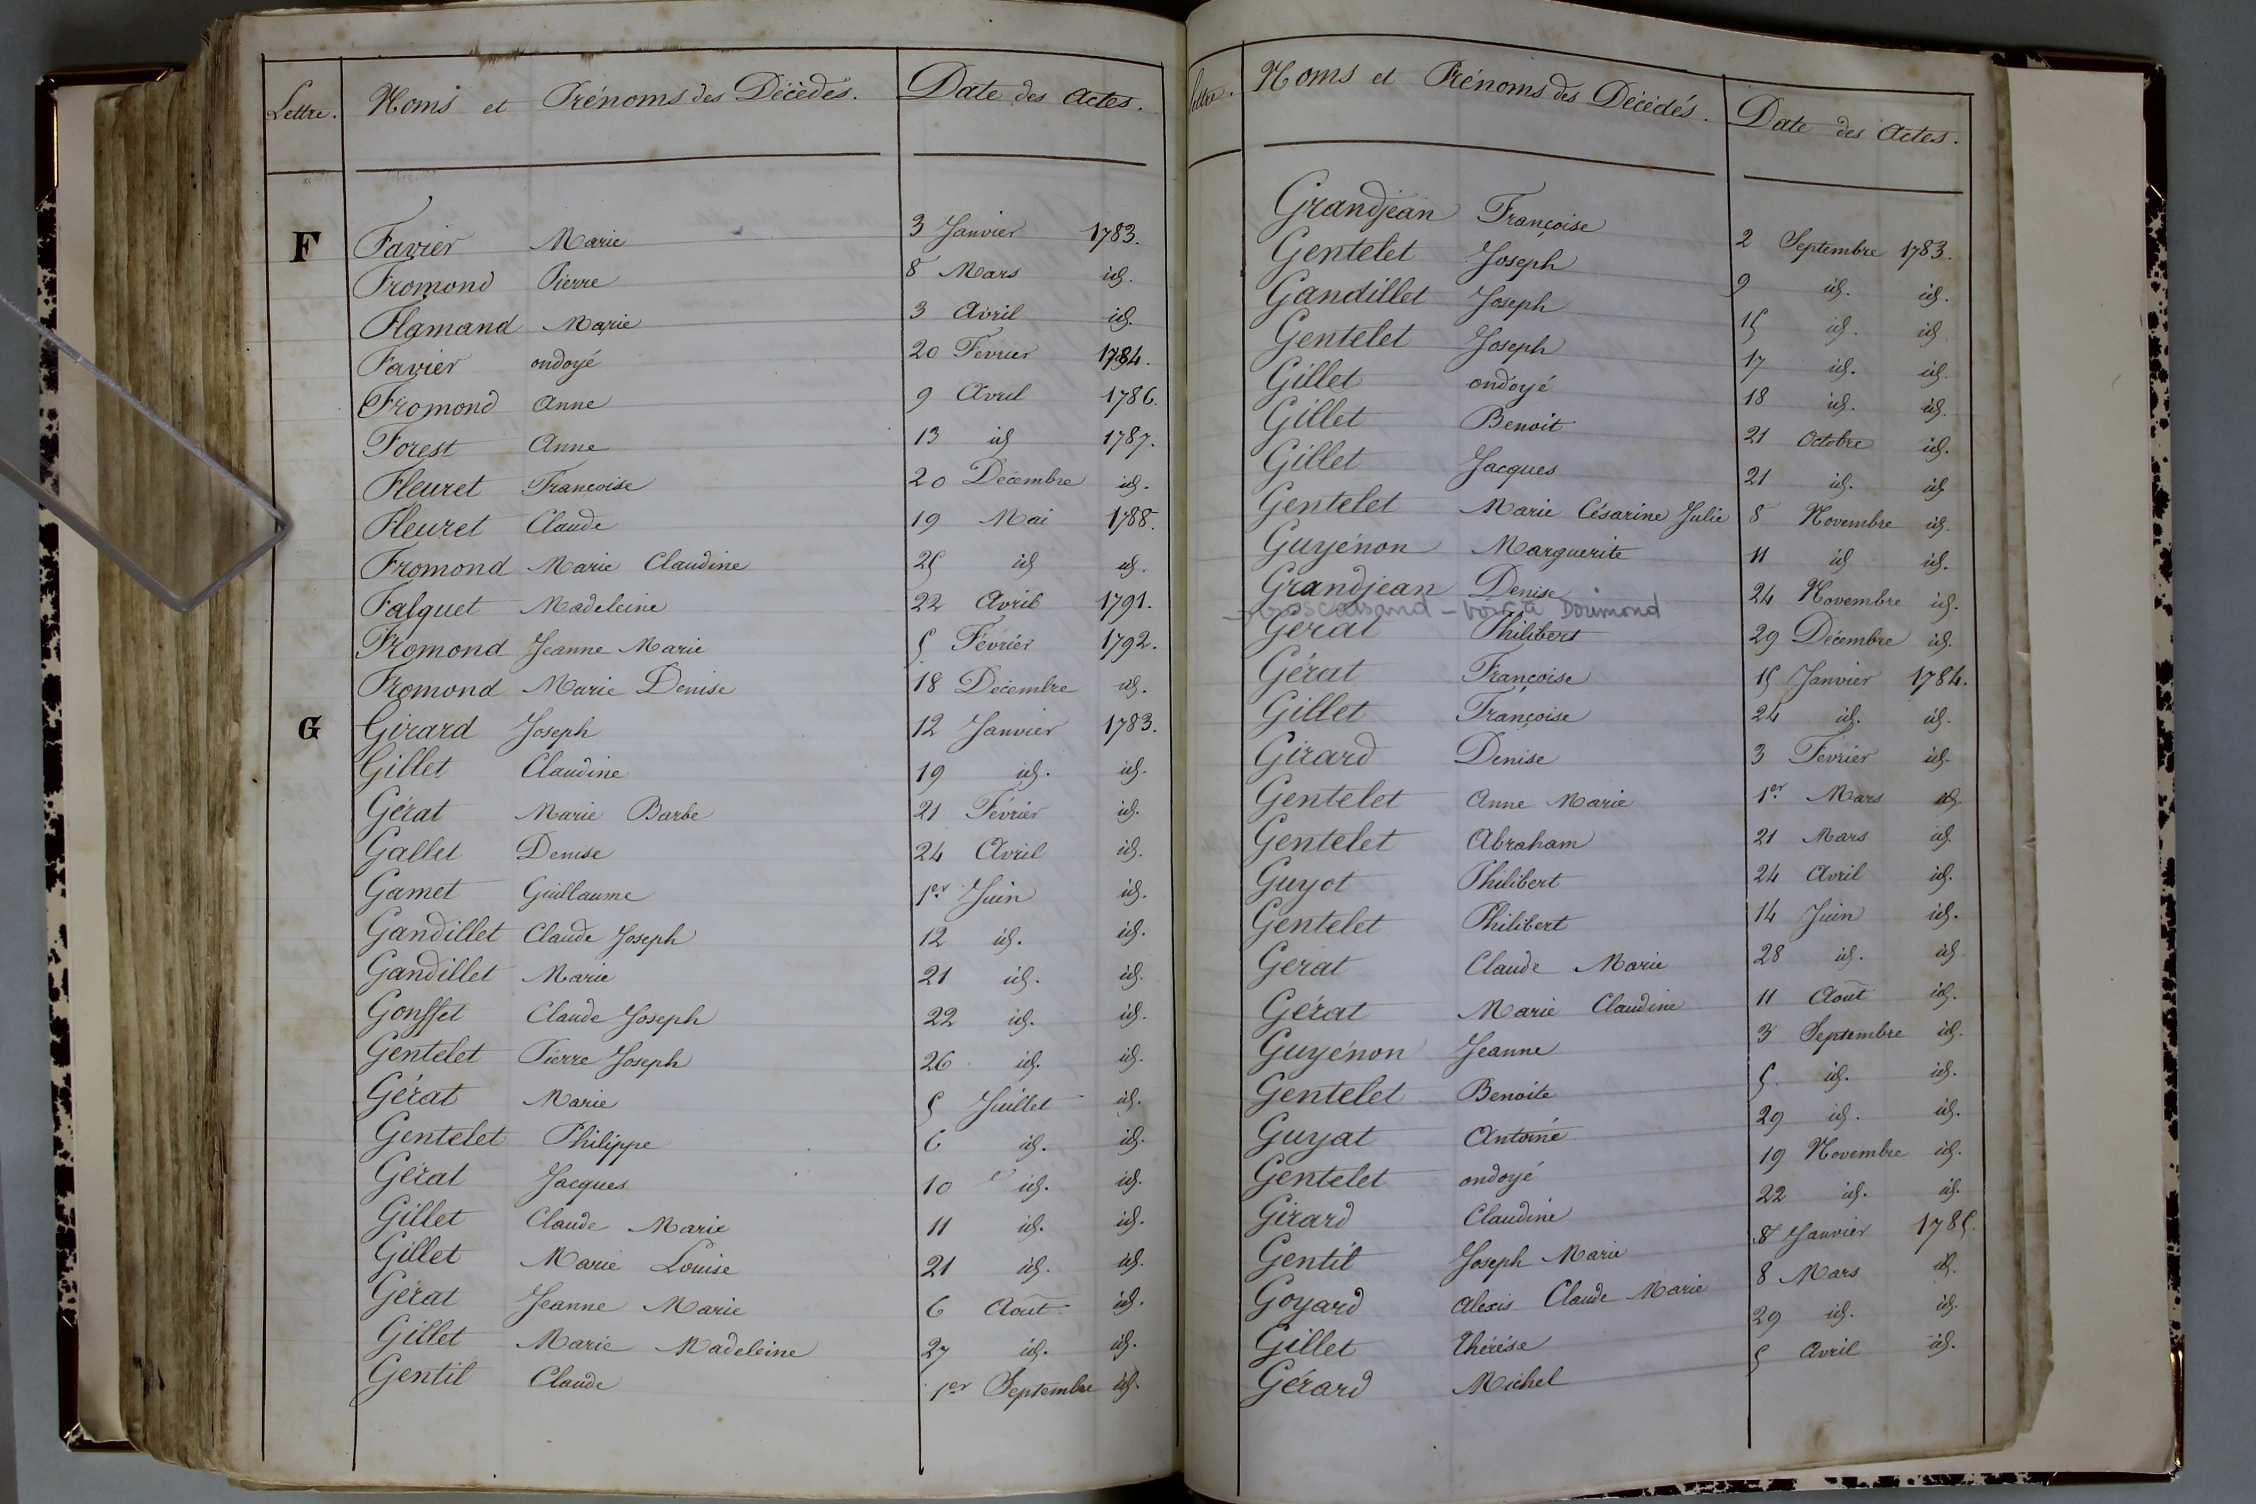 Lettre. Noms et Prénoms des Décédés. Date des Actes.
F Favier Marie 3 Janvier 1783.
Fromond Pierre 8 Mars id.
Flamand Marie 3 Avril id.
Favier ondoyé 20 Fevrier 1784.
Fromond Anne 9 Avril 1786.
Forest Anne 13 id 1787.
Fleuret Francoise 20 Décembre id.
Fleuret Claude 19 Mai 1788.
Fromond Marie Claudine 25 id id.
Falquet Madeleine 22 Avril 1791.
Fromond Jeanne Marie 5 Février 1792.
Fromond Marie Denise 18 Décembre id.
G Girard Joseph 12 Janvier 1783.
Gillet Claudine 19 id. id.
Gérat Marie Barbe 21 Février id.
Gallet Denise 24 Avril id.
Gamet Guillaume 1er Juin id.
Gandillet Claude Joseph 12 id. id.
Gandillet Marie 21 id. id.
Gonffet Claude Joseph 22 id. id.
Gentelet Pierre Joseph 26 id. id.
Gérat Marie 5 Juillet id.
Gentelet Philippe 6 id. id.
Gérat Jacques 10 id. id.
Gillet Claude Marie 11 id. id.
Gillet Marie Louise 21 id. id.
Gérat Jeanne Marie 6 Août id.
Gillet Marie Madeleine 27 id. id.
Gentil Claude 1er Septembre id.
Lettre. Noms et Prénoms des Décédés. Date des Actes.
Grandjean Françoise 2 Septembre 1783.
Gentelet Joseph 9 id. id.
Gandillet Joseph 15 id. id
Gentelet Joseph 17 id. id.
Gillet ondoyé 18 id. id.
Gillet Benoit 21 Octobre id.
Gillet Jacques 21 id. id
Gentelet Marie Césarine Julie 8 Novembre id.
Guyénon Marguerite 11 id id.
Grandjean Denise 24 Novembre id.
voir à Dorimond
Gérat Philibert 29 Décembre id.
Gérat Françoise 15 Janvier 1784.
Gillet Françoise 24 id. id.
Girard Denise 3 Février id.
Gentelet Anne Marie 1er Mars id.
Gentelet Abraham 21 Mars id.
Guyot Philibert 24 Avril id.
Gentelet Philibert 14 Juin id.
Gerat Claude Marie 28 id. id
Gérat Marie Claudine 11 Août id.
Guyénon Jeanne 3 Septembre id.
Gentelet Benoite 5 id. id.
Guyat Antoine 29 id. id.
Gentelet ondoyé 19 Novembre id.
Girard Claudine 22 id. id.
Gentil Joseph Marie 8 Janvier 1785.
Goyard Alexis Claude Marie 8 Mars id.
Gillet Thérèse 29 id. id.
Gérard Michel 5 Avril id.